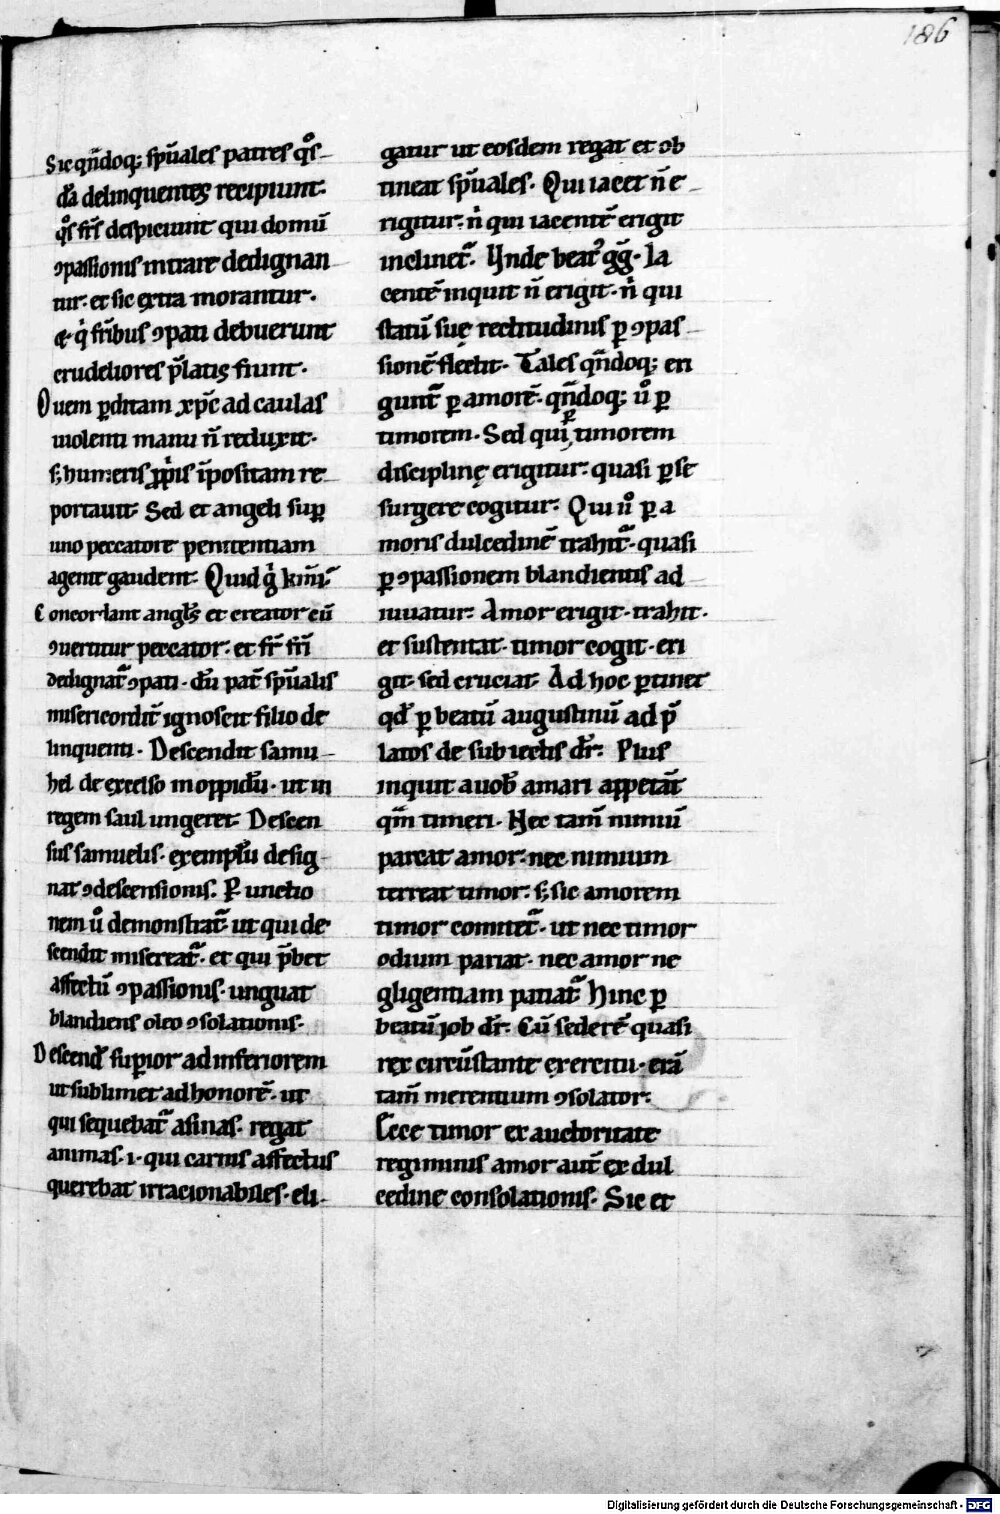 186
Sic qn̄doq; sp̄uales patres qͦs
dā delinquentes recipiunt.
qͦs fr̄s despiciunt qui domū
ꝯpassionis intrare dedignan
tur. et sic extra morantur.
& qͥ frīb ꝯpati debuerunt
crudeliores p̄latis fiunt.
Ouem ꝑditam xp̄c ad caulas
uiolenti manu n̄ reduxit.
s; humeris ꝓpͥis īpositam re
portauit. Sed et angeli suꝑ
uno peccatore penitentiam
agente gaudent. Quid gͥ
Concordant angłs et creator cū
ꝯuertitur peccator. et fr̄ fr̄i
dedignat᷑ ꝯpati. dū pat̄ sp̄ualis
misericordit̄ ignoscit filio de
linquenti. Descendit samu
hel de excelso in oppidū. ut in
regem saul ungeret. Descen
sus samuelis. exemplū desig
nat ꝯdescensionis. Ꝑ unctio
nem uͦ demonstrat᷑ ut qui de
scendit misereat᷑. et qui p̄bet
affectū ꝯpassionis. unguat
blandiens oleo ꝯsolationis.
Descend̄ suꝑior ad inferiorem
ut sublimet ad honorē. ut
qui sequebat᷑ asinas. regat
animas .i. qui carnis affectus
querebat irracionabiles. eli
gatur ut eosdem regat et ob
tineat sp̄uales. Qui iacet n̄ e
rigitur. nͥ qui iacentē erigit
inclinet᷑. Vnde beatꝰ gḡ. Ia
centē inquit n̄ erigit. nͥ qui
statū suę rectitudinis ꝑ ꝯpas
sionē flectit. Tales qn̄doq; eri
gunt᷑ ꝑ amorē. qn̄doq; uͦ ꝑ
timorem. Sed qui ꝑ timorem
disciplinę erigitur. quasi ꝑ se
surgere cogitur. Qui uͦ ꝑ a
moris dulcedinē trahit᷑. quasi
ꝑ ꝯpassionem blandientis ad
iuuatur. Amor erigit. trahit.
et sustentat. timor cogit. eri
git. sed cruciat. Ad hoc ꝑtinet
qd̄ ꝑ beatū augustinū ad p̄
latos de subiectis dr̄. Plus
inquit a uob̄ amari appetat᷑
qm̄ timeri. Nec tam̄ nimiū
parcat amor. nec nimium
terreat timor. s; sic amorem
timor comitet᷑. ut nec timor
odium pariat. nec amor ne
gligentiam patiat᷑ Hinc ꝑ
beatū job dr̄. Cū sederē quasi
rex circūstante exercitu. erā
tam̄ merentium ꝯsolator.
Ecce timor ex auctoritate
regiminis amor aut̄ ex dul
cedine consolationis. Sic et
Digitalisierung gefördert durch die Deutsche Forschungsgemeinschaft - DFG